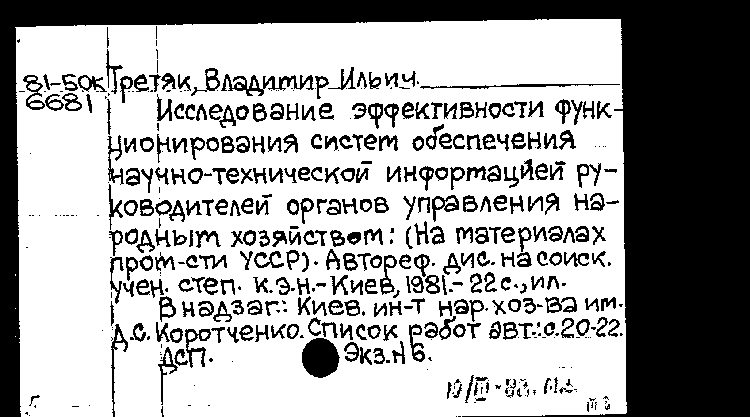 81-5ок Третяк, Владимир Ильич.
6681 Исследование эффективности функ-
ционирования систем обеспечения
научно-технической информацией ру-
ководителей органов управления на-
родным хозяйством: (На материалах
пром-сти УССР). Автореф. дис. на соиск.
учен. степ. к.э.н.- Киев, 1981.- 22с., ил.
В надзаг.: Киев. ин-т нар. хоз-ва им.
Д.С. Коротченко. Список работ авт.: с.20-22.
ДСП. Экз.N 6.